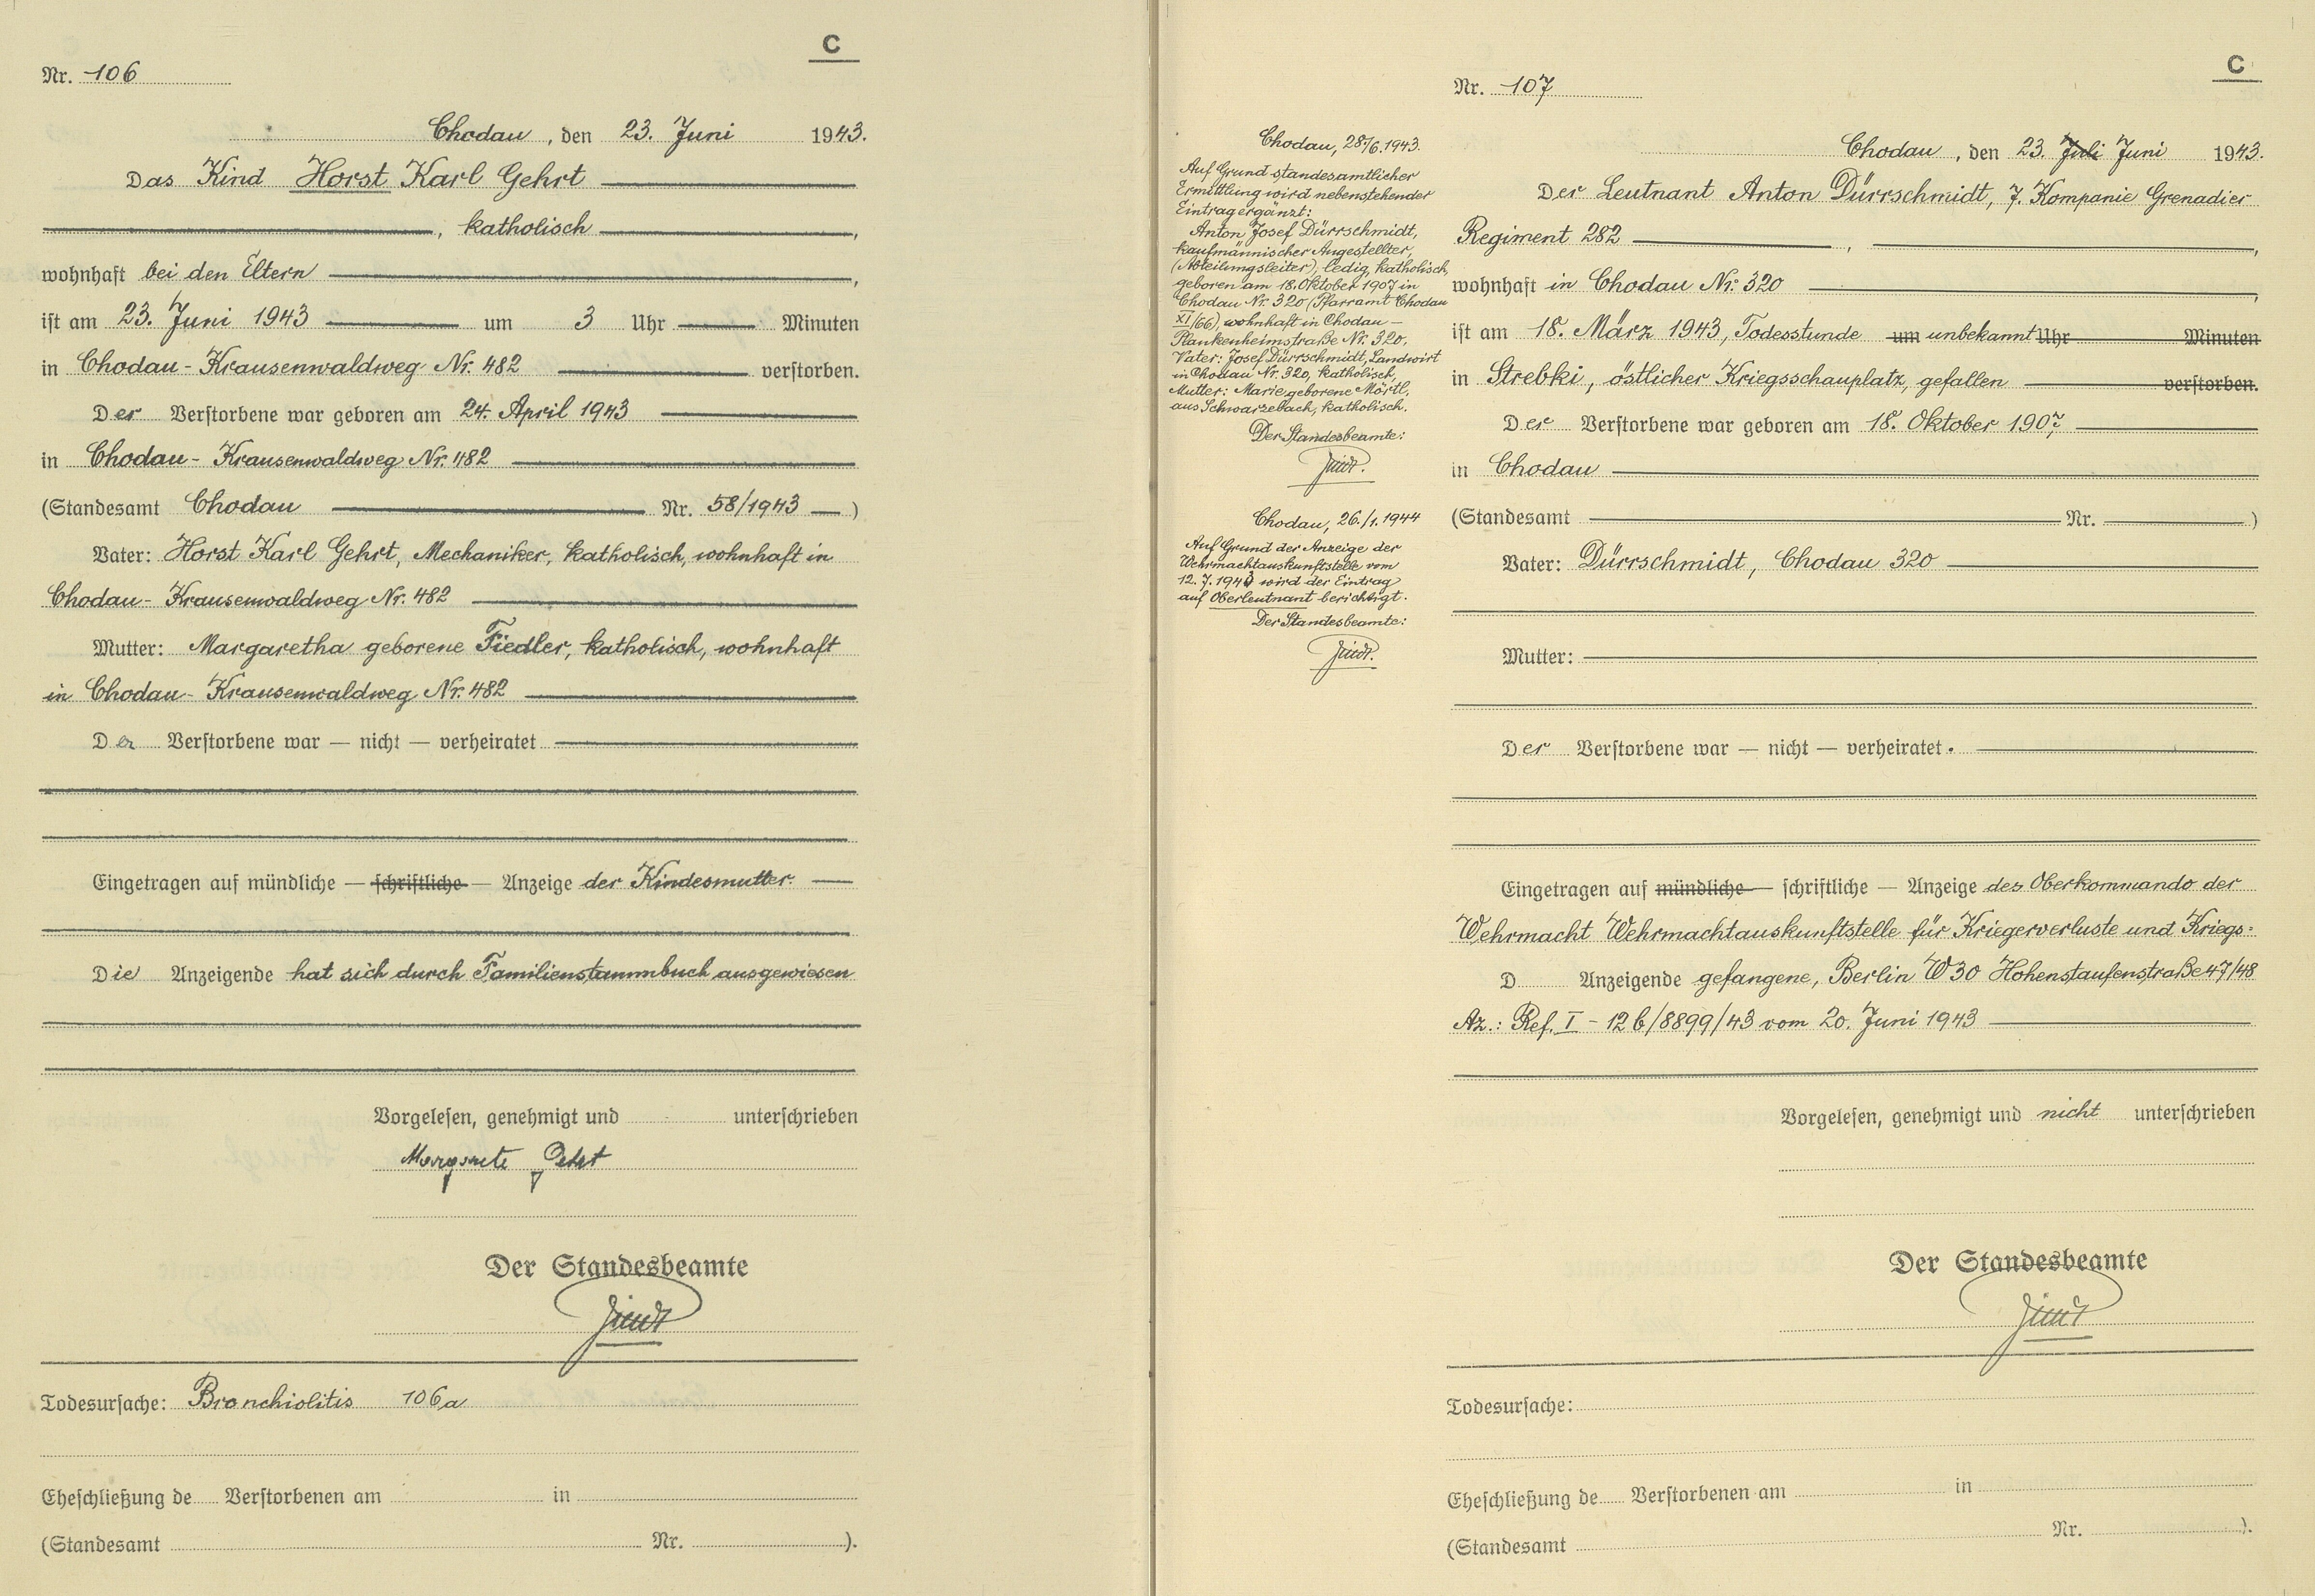 C
Nr. 106
Chodau, den 23. Juni 1943.
Das Kind Horst Karl Gehrt
, katholisch ,
wohnhaft bei den Eltern ,
ist am 23. Juni 1943 um 3 Uhr Minuten
in Chodau - Krausenwaldweg Nr. 482 verstorben.
Der Verstorbene war geboren am 24. April 1943
in Chodau - Krausenwaldweg Nr. 482
(Standesamt Chodau Nr. 58/1943 — )
Vater: Horst Karl Gehrt, Mechaniker, katholisch, wohnhaft in
Chodau - Krausenwaldweg Nr. 482
Mutter: Margaretha geborene Fiedler, katholisch, wohnhaft
in Chodau - Krausenwaldweg Nr. 482
Der Verstorbene war — nicht — verheiratet
Eingetragen auf mündliche — schriftliche — Anzeige der Kindesmutter. —
Die Anzeigende hat sich durch Familienstammbuch ausgewiesen
Vorgelesen, genehmigt und unterschrieben
Margarete Gehrt
Der Standesbeamte
Todesursache: Bronchiolitis 106a
Eheschließung de Verstorbenen am in
(Standesamt Nr. ).
C
Nr. 107
Chodau, 28./6.1943.
Auf Grund standesamtlicher
Ermittlung wird nebenstehender
Eintrag ergänzt:
Anton Josef Dürrschmidt,
kaufmännischer Angestellter,
(Abteilungsleiter), ledig, katholisch,
geboren am 18. Oktober 1907 in
Chodau Nr. 320 (Pfarramt Chodau
XI/66), wohnhaft in Chodau —
Plankenheimstraße Nr. 320.
Vater: Josef Dürrschmidt, Landwirt
in Chodau Nr. 320, katholisch,
Mutter: Marie geborene Mörtl,
aus Schwarzebach, katholisch.
Der Standesbeamte:
Chodau, 26./1.1944
Auf Grund der Anzeige der
Wehrmachtauskunftstelle vom
12. 7. 1943 wird der Eintrag
auf Oberleutnant berichtigt.
Der Standesbeamte:
Chodau, den 23. Juli Juni 1943.
Der Leutnant Anton Dürrschmidt, 7. Kompanie Grenadier
Regiment 282 , ,
wohnhaft in Chodau Nr. 320 ,
ist am 18. März 1943, Todesstunde um unbekannt Uhr Minuten
in Strebki, östlicher Kriegsschauplatz, gefallen verstorben.
Der Verstorbene war geboren am 18. Oktober 1907
in Chodau
(Standesamt Nr. )
Vater: Dürrschmidt, Chodau 320
Mutter:
Der Verstorbene war — nicht — verheiratet.
Eingetragen auf mündliche — schriftliche — Anzeige des Oberkommando der
Wehrmacht Wehrmachtauskunftstelle für Kriegerverluste und Kriegs=
D Anzeigende gefangene, Berlin W 30 Hohenstaufenstraße 47/48
Az.: Ref. I - 12 b/8899/43 vom 20. Juni 1943
Vorgelesen, genehmigt und nicht unterschrieben
Der Standesbeamte
Todesursache:
Eheschließung de Verstorbenen am in
(Standesamt Nr. ).